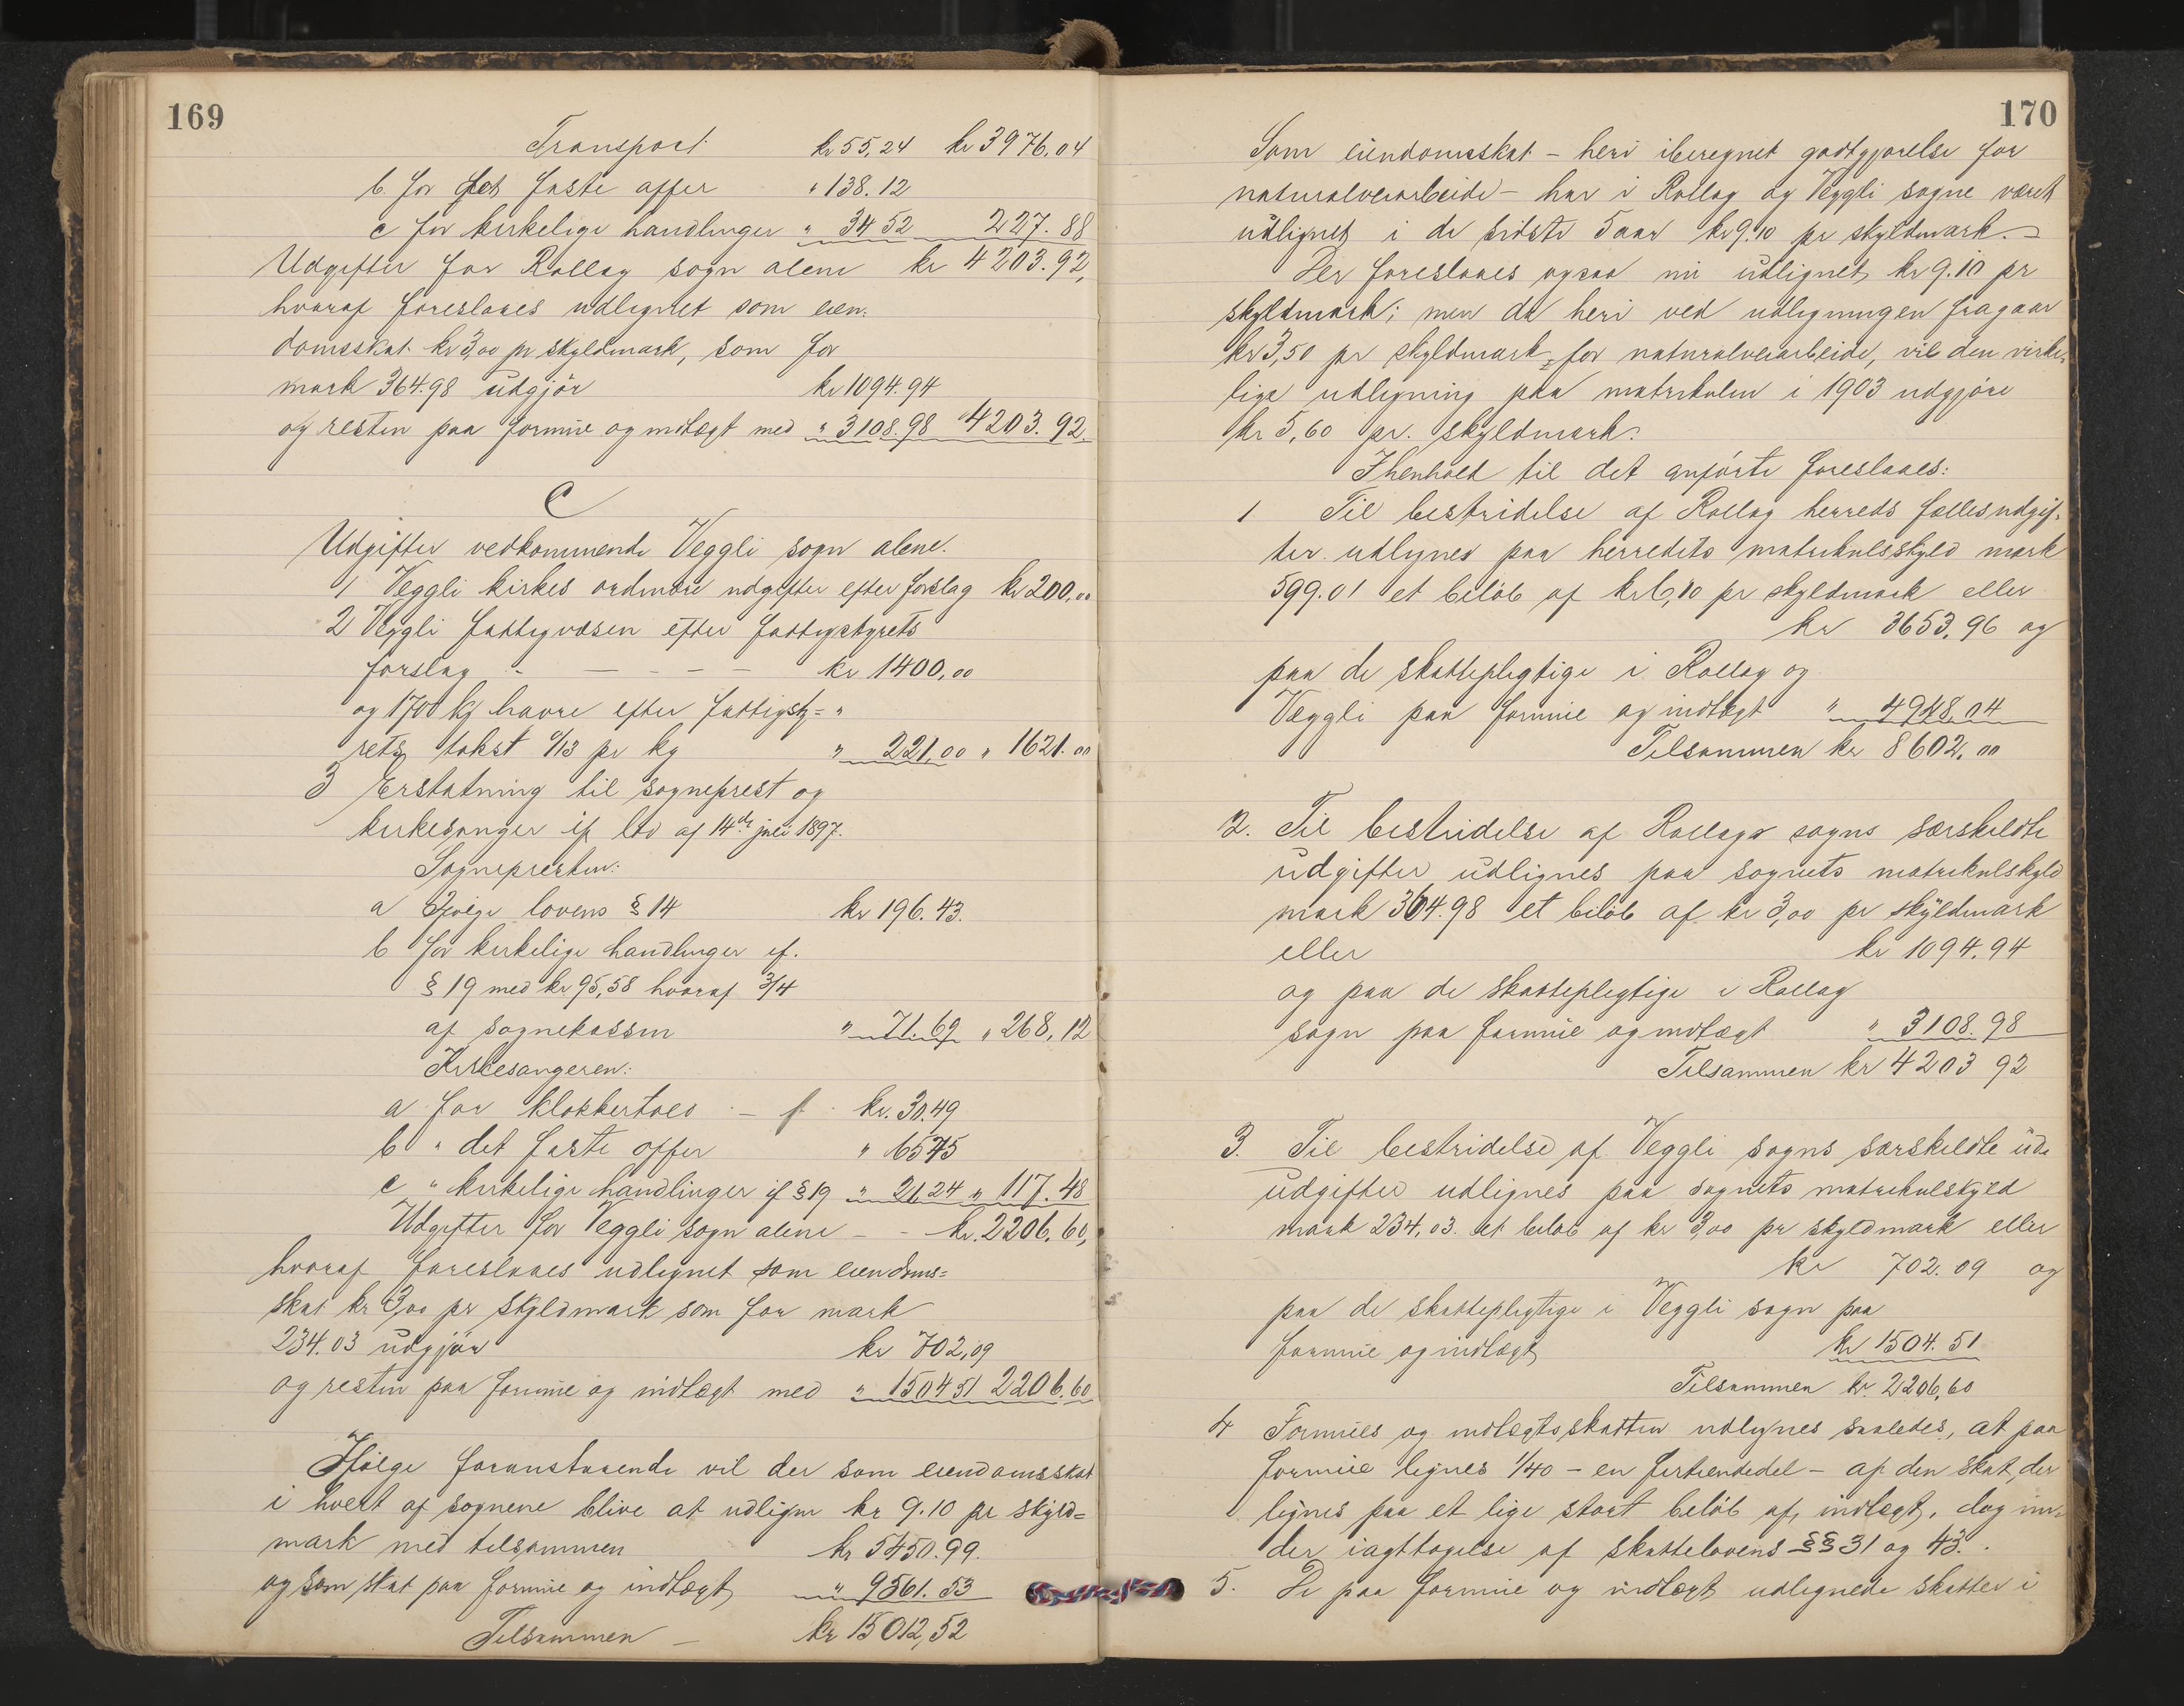 169
Transport kr 55,24 kr 3976,04
b. for det faste offer " 138.12
c for kirkelige handlinger " 34 52 227.88
Udgifter for Rollag sogn alene kr 4203.92,
hvoraf foreslaaes udlignet som eien-
domsskat kr 3,00 pr skyldmark, som for
mark 364.98 udgjør kr 1094.94
og resten paa formue og indtægt med " 3108.98 4203.92.
C
Udgifter vedkommende Veggli sogn alene.
1 Veggli kirkes ordinære udgifter efter forslag kr 200,00
2 Veggli fattigvæsen efter fattigstyrets
forslag - — - - — kr 1400,00
og 1700 kg havre efter fattigsty= "
rets takst 0/13 pr kg " 221,00 " 1621.00
3 Erstatning til sogneprest og
kirkesanger if lov af 14de juli 1897.
Sognepresten:
a Ifølge lovens § 14 kr 196.43.
b for kirkelige handlinger if.
§ 19 med kr 95,58 hvoraf 3/4
af sognekassen " 71.69 " 268,12
Kirkesangeren:
a for klokkertold - kr. 30.49
b " det faste offer " 65 75
c " kirkelige handlinger if § 19 " 21.24 " 117.48
Udgifter for Veggli sogn alene - - kr. 2206.60,
hvoraf foreslaaes udlignet som eiendoms=
skat kr 3,00 pr skyldmark som for mark
234.03 udgjør kr 702,09
og resten paa formue og indtægt med " 1504 51 2206.60
Ifølge foranstaaende vil der som eiendomsskat
i hvert af sognene blive at udligne kr 9.10 pr skyld=
mark med tilsammen kr 5450.99.
og som skat paa formue og indtægt " 9561.53
Tilsammen — kr 15012,52
170
Som eiendomsskat – heri iberegnet godtgjørelse for
naturalveiarbeide – har i Rollag og Veggli sogne været
udlignet i de sidste 5 aar kr 9.10 pr skyldmark. –
Der foreslaaes ogsaa nu udlignet kr 9.10 pr
skyldmark; men da heri ved udligningen fragaar
kr 3,50 pr skyldmark for naturalveiarbeide, vil den virke-
lige udligning paa matrikulen i 1903 udgjøre
kr 5,60 pr. skyldmark.
Ihenhold til det anførte foreslaaes:
1 Til bestridelse af Rollag herreds fællesudgif-
ter udlignes paa herredets matrikulsskyld mark
599.01 et beløb af kr 6,10 pr skyldmark eller
kr 3653,96 og
paa de skattepligtige i Rollag og
Veggli paa formue og indtægt " 4948,04
Tilsammen kr 8602,00
2. Til bestridelse af Rollags sogns særskildte
udgifter udlignes paa sognets matrikulskyld
mark 364.98 et beløb af kr 3,00 pr skyldmark
eller kr 1094.94
og paa de skattepligtige i Rollag
sogn paa formue og indtægt " 3108.98
Tilsammen kr 4203 92
3. Til bestridelse af Veggli sogns særskildte ud-
udgifter udlignes paa sognets matrikulskyld
mark 234,03 et beløb af kr 3,00 pr skyldmark eller
kr 702.09 og
paa de skattepligtige i Veggli sogn paa
formue og indtægt kr 1504.51
Tilsammen kr. 2206,60
4 Formues og indtægtsskatten udlignes saaledes, at paa
formue lignes 1/40 – en førtiendedel – af den skat, der
lignes paa et lige stort beløb af indtægt, dog un-
der iagttagelse af skattelovens §§ 31 og 43.
5. De paa formue og indtægt udlignede skatter i